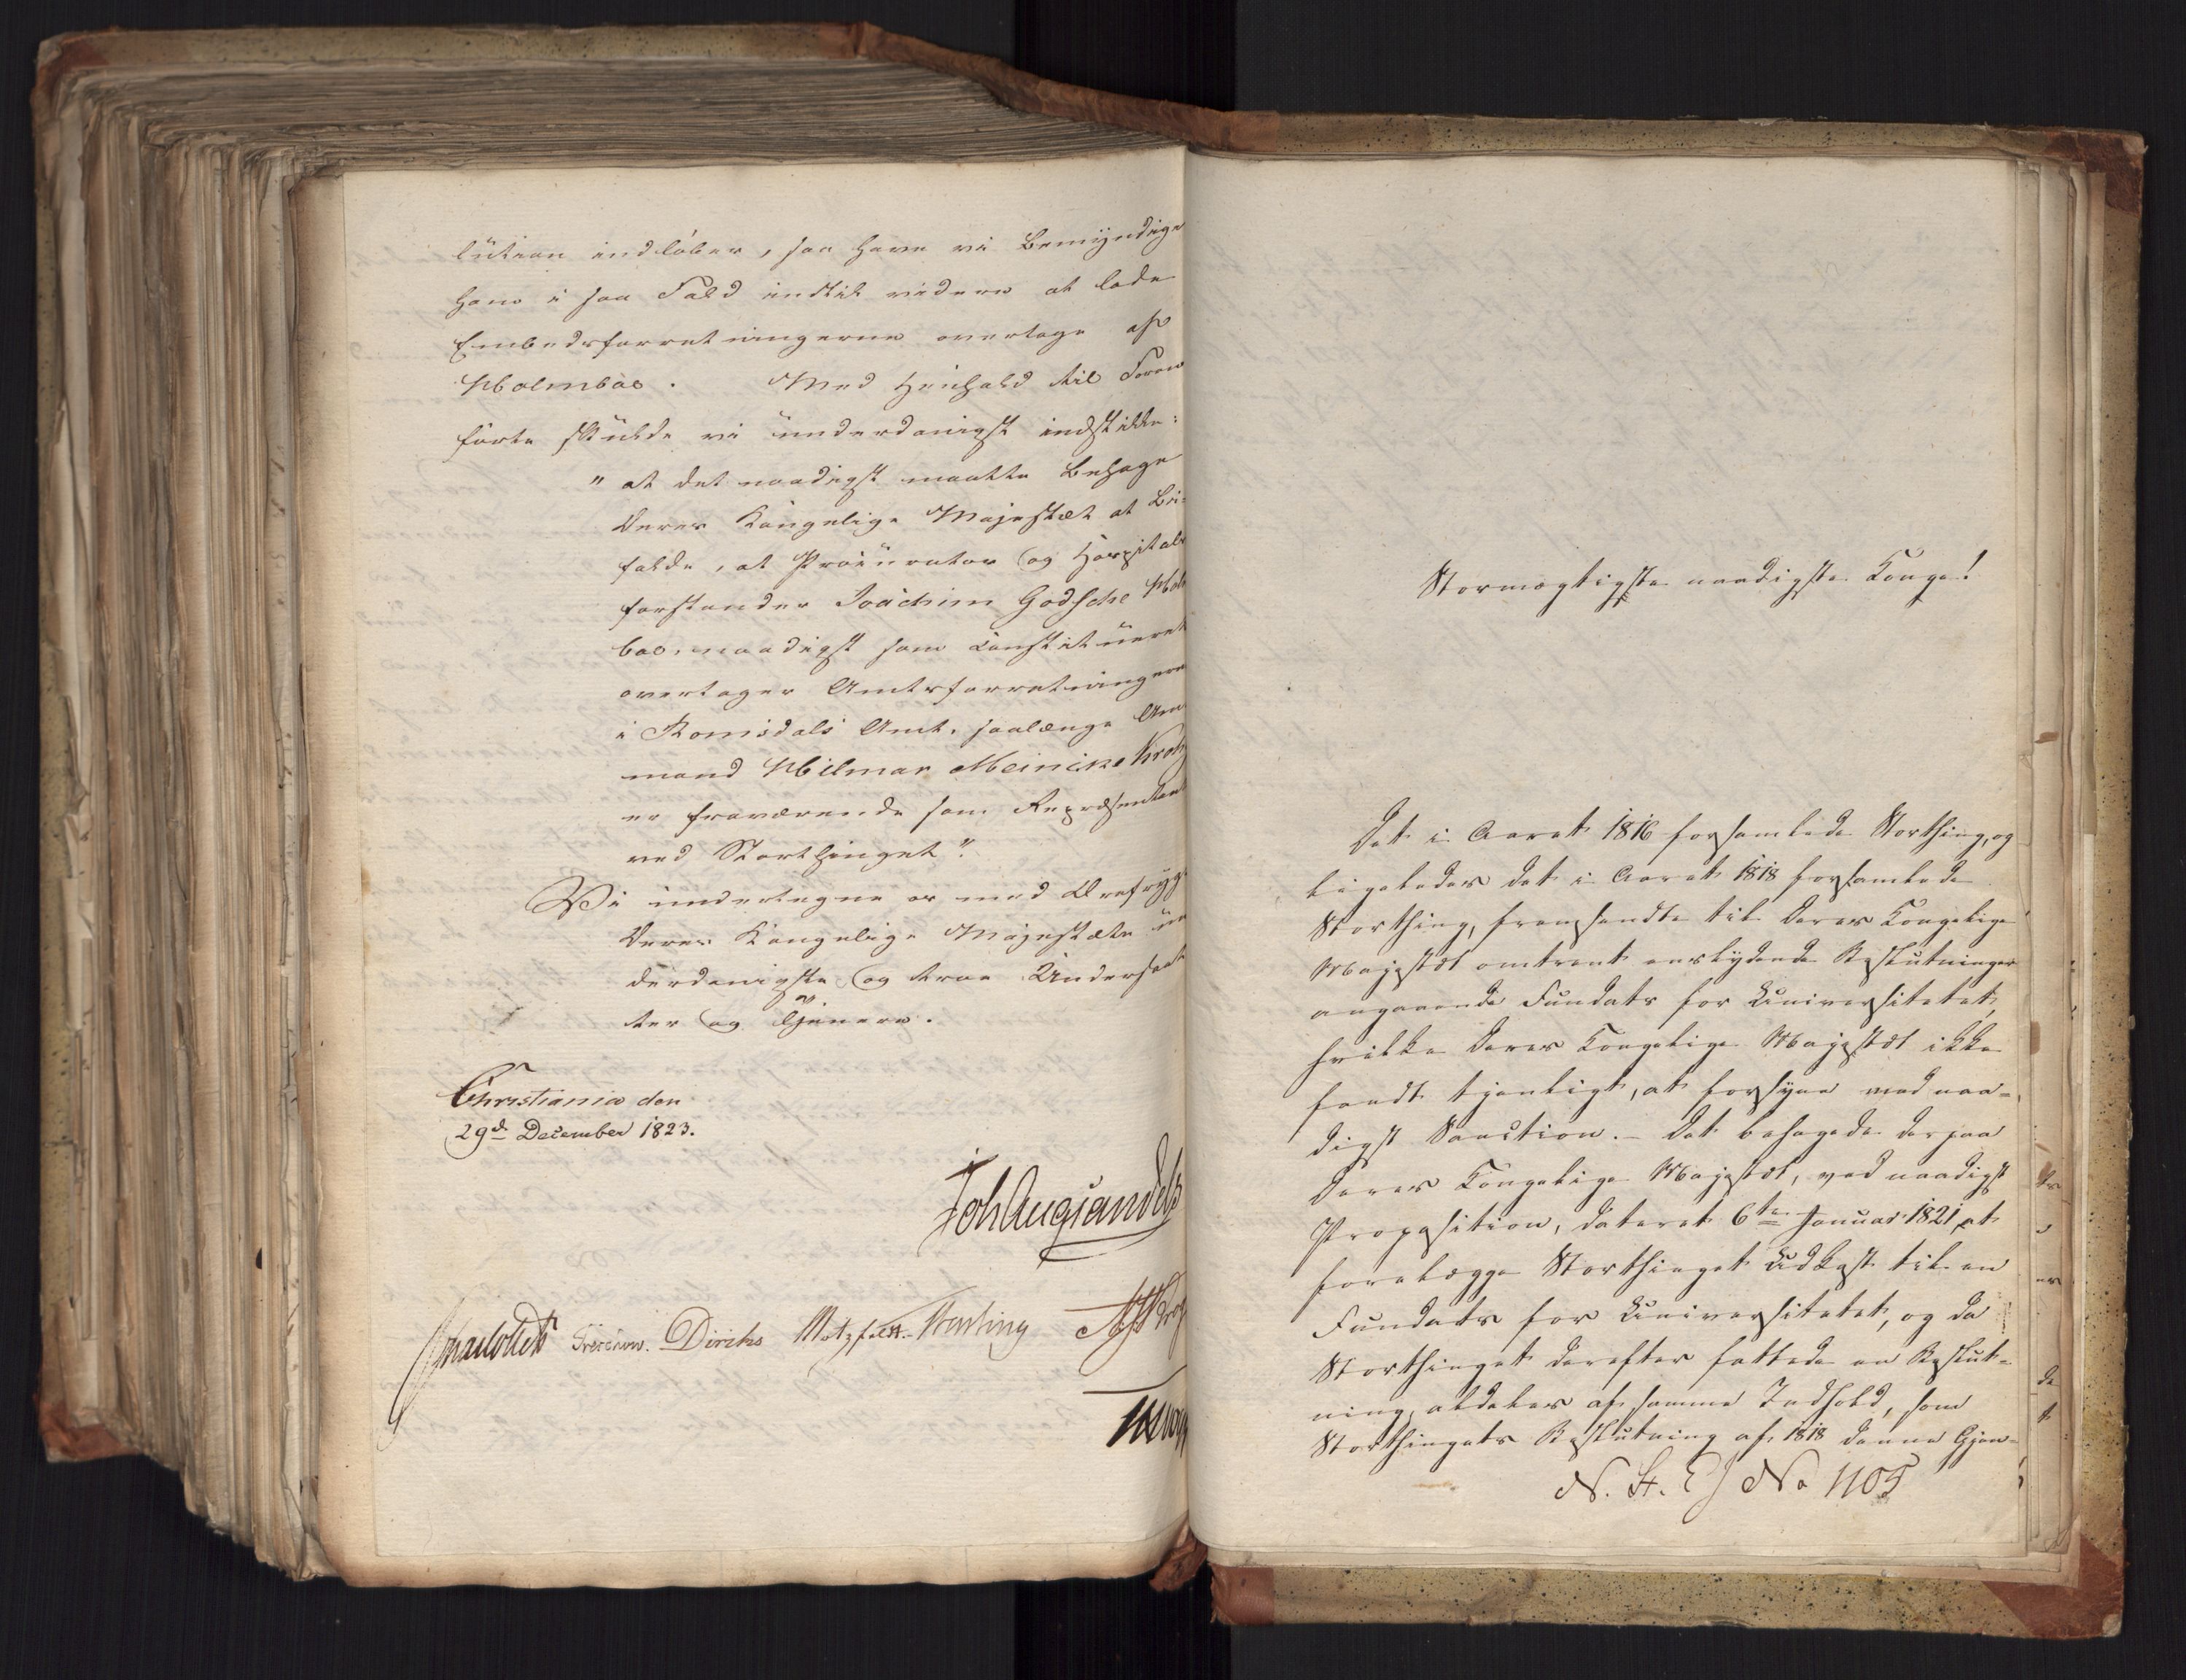 lution indløber, saa have vi bemyndige
ham i saa Fald indtil videre at lade
Embedsforretningerne overtage af
Holmboe. Med Henhold til Foran
førte skulde vi underdanigst indstille:
"at det naadigst maatte behage
Deres Kongelige Majestæt at bi-
falde, at Procurator og Hospitals
forstander Joachim Godsche Hol
boe naadigst som constitueret
overtager Amtsforretningerne
i Romsdals Amt, saalænge Am
mand Hilmar Meincke Krog
er fraværende som Repræsentant
ved Storthinget".
Vi undertegne os med Ærefrygt
Deres Kongelige Majestæts un
derdanigste og troe Undersaat
ter og Tjenere.
Christiania den
29d December 1823.
Joh Aug Sandels
JCollett Treschow. Diriks Motzfeldt. Hertzberg Krog
Det i Aaret 1816 forsamlede Storthing, og
Stormægtigste naadigste Konge!
ligeledes det i Aaret 1818 forsamlede
Storthing, fremsendte til Deres Kongelige
Majestæt omtrent enslydende Beslutninger
angaaende Fundats for Universitetet,
hvilke Deres Kongelige Majestæt ikke
fandt tjenligt, at forsyne med naa-
digst Sanction. - Det behagede derpaa
Deres Kongelige Majestæt, ved naadigst
Proposition, dateret 6te Januar 1821, at
forelægge Storthinget Udkast til en
Fundats for Universitetet, og da
Storthinget derefter fattede en Beslut-
ning, aldeles af samme Indhold, som
Storthingets Beslutning af 1818 denne Gjen-
N. St. E J No 1105